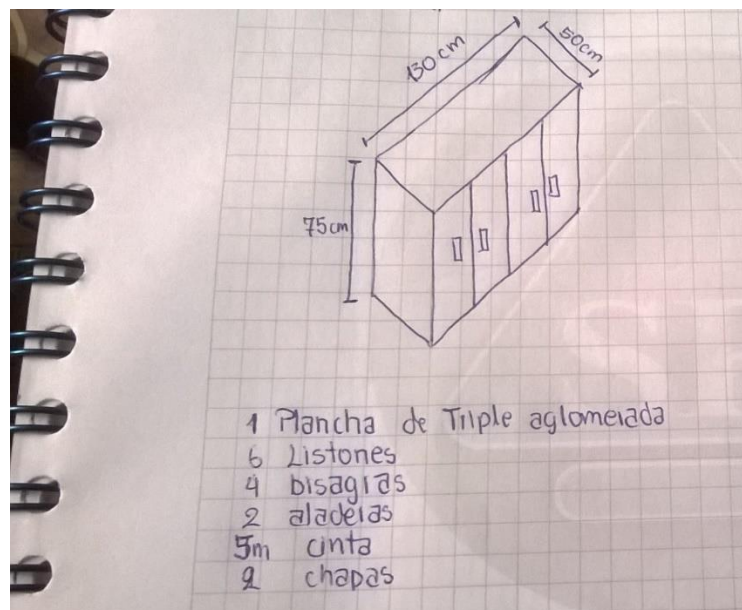 130 cm
50cm
75cm
1 Plancha de Triple aglomerada
6 Listones
4 bisagras
2 aladeras
5m cinta
2 chapas